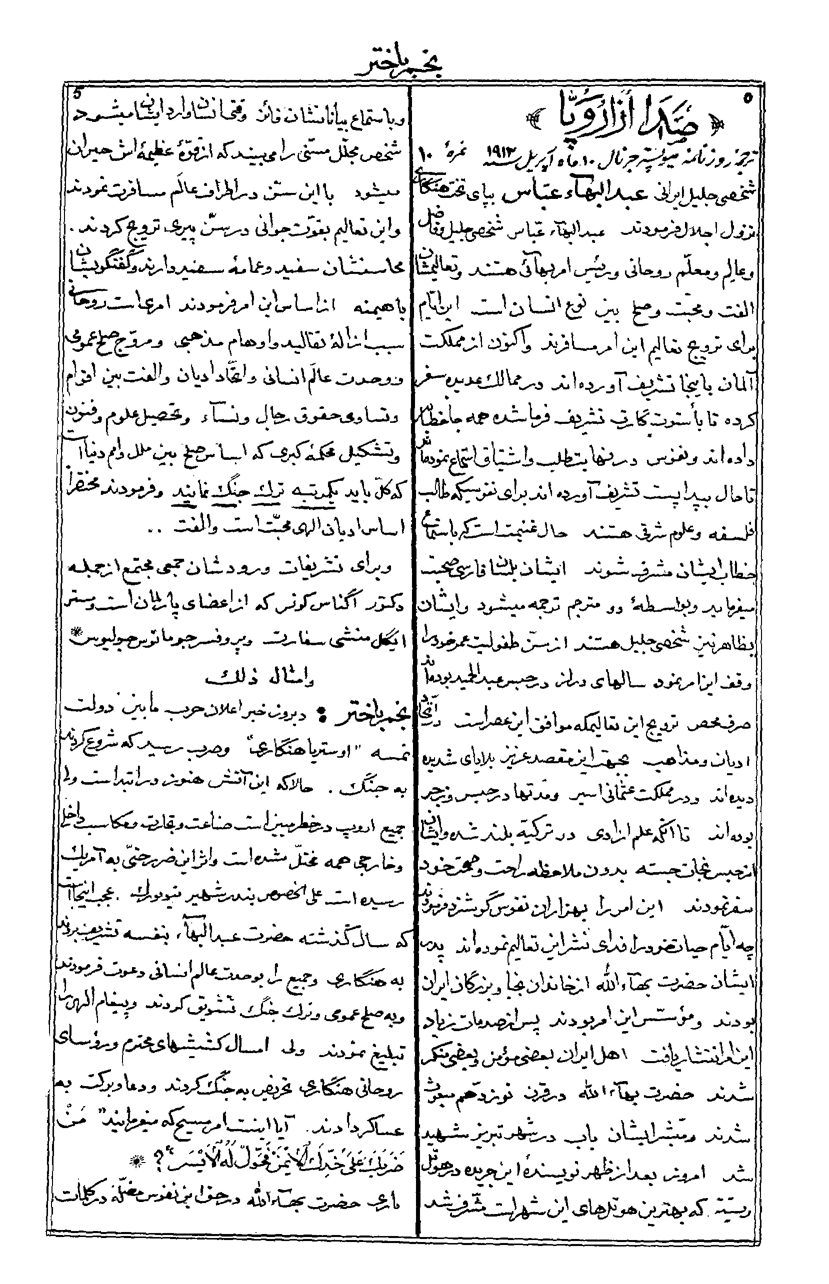 نجم باختر
۵
صدا از اروپا
ترجمهٔ روزنامهٔ میونیستر جرنال ۱۰ ماه آپریل سنه ۱۹۱۳ نمرهٔ ۱۰
شخصی جلیل ایرانی عبدالبهاء عباس بپای تخت هنگاری
نزول اجلال فرمودند عبدالبهآء عباس شخصی جلیل و فاضل
و عالم و معلّم روحانی و رئیس امر بهائی هستند و تعالیمشان
الفت و محبّت و صلح بین نوع انسان است این ایّام
برای ترویج تعالیم این امر مسافرند و اکنون از مملکت
آلمان باینجا تشریف آورده اند در ممالک عدیده سفر
کرده تا باستوت گارت تشریف فرما شده همه جا خطابه
داده اند و نفوس در نهایت طلب و اشتیاق استماع نموده‌اند
تا حال ببداپست تشریف آورده اند برای نفوسیکه طالب
فلسفه و علوم شرقی هستند حال غنیمت است که باستماع
خطاب ایشان مشرف شوند ایشان بلسان فارسی صحبت
میفرمایند و بواسطهٔ دو مترجم ترجمه میشود و ایشان
بظاهر نیز شخصی جلیل هستند از سنّ طفولیت عمر خود را
وقف این امر نمود سالهای دراز در حبس عبدالحمید بوده‌اند
صرف محض ترویج این تعالیمکه موافق این عصر است در اتّحاد
ادیان و مذاهب بجهت این مقصد عزیز بلایای شدیده
دیده اند و در مملکت عثمانی اسیر و مدتها در حبس و زجر
بوده اند تا آنکه علم ازادی در ترکیه بلند شده و ایشان
از حبس نجات جسته بدون ملاحظه راحت و صحّت خود
سفر نمودند این امر را بهزاران نفوس گوشزد فرمودند
چه ایّام حیات خود را فدای نشر این تعالیم نموده اند پدر
ایشان حضرت بهآء الله از خاندان نجبا و بزرگان ایران
بودند و مؤسّس این امر بودند پس از صدمات زیاد
این امر انتشار یافت اهل ایران بعضی مؤمن و بعضی منکر
شدند حضرت بهآء الله در قرن نوزدهم مبعوث
شدند و مبشّر ایشان باب در شهر تبریز شهید
شد امروز بعد از ظهر نویسندهٔ این جریده در هوتل
ریتز که بهترین هوتلهای این شهر است مشرف شد
5
و باستماع بیاناتشان فائز وقتی انسان وارد ایشان میشود
شخص مجلّل مسنّی را می بیند که از قوّهٔ عظیمهٔ اش حیران
میشود با این سنّ در اطراف عالم مسافرت نمودند
و این تعالیم بقوّت جوانی در سنّ پیری ترویج کردند .
محاسنشان سفید و عمامهٔ سفید دارند و گفتگویشان
با هیمنه از اساس این امر فرمودند امر ما ت روحانی
سبب ازالهٔ تقالید و اوهام مذهبی و مروّج صلح عمومی
و وحدت عالم انسانی و اتّحاد ادیان و الفت بین اقوام
و تساوی حقوق رجال و نسآء و تحصیل علوم و فنون
و تشکیل محکمهٔ کبری که اساس صلح بین ملل و امم دنیا است
که کلّ باید یکمرتبه ترک جنگ نمایند و فرمودند مختصراً
اساس ادیان الهی محبّت است و الفت ..
و برای تشریفات ورودشان جمعی مجتمع از جمله
دکتور اگناس کونر که از اعضای پارلمان است و مستر
انگل منشی سفارت و پروفسر جرمانوس جولیوس*
و امثال ذلک
نجم باختر : دیروز خبر اعلان حرب مابین دولت
نمسه "اوستریا هنگاری" و صرب رسید که شروع کردند
به جنگ . حالا که این آتش هنوز در ابتدا است ولی
جمیع اروپ در خطر میزا است صناعت و تجارت و مکاسب داخلی
و خارجی همه مختلّ شده است و اثر این ضرر حتّی به آمریک
رسیده است علی الخصوص بندر شهیر نیویورک . عجب اینجا است
که سال گذشته حضرت عبد البهآء بنفسه تشریف بردند
به هنگاری و جمیع را بوحدت عالم انسانی دعوت فرمودند
و به صلح عمومی و ترک جنگ تشویق کردند و پیغام الهی را
تبلیغ نمودند ولی امسال کشیشهای محترم و رؤسای
روحانی هنگاری تحریص به جنگ کردند و دعا و برکت به
عساکر دادند . آیا اینست امر مسیح که میفرمایند " مَنْ
ضَرَبَكَ عَلَى خَدِّكَ الْأَيْمَنِ فَحَوِّلْ لَهُ الْأَيْسَرَ " ؟ *
باری حضرت بهآء الله در حقّ این نفوس مضلّه در کلمات